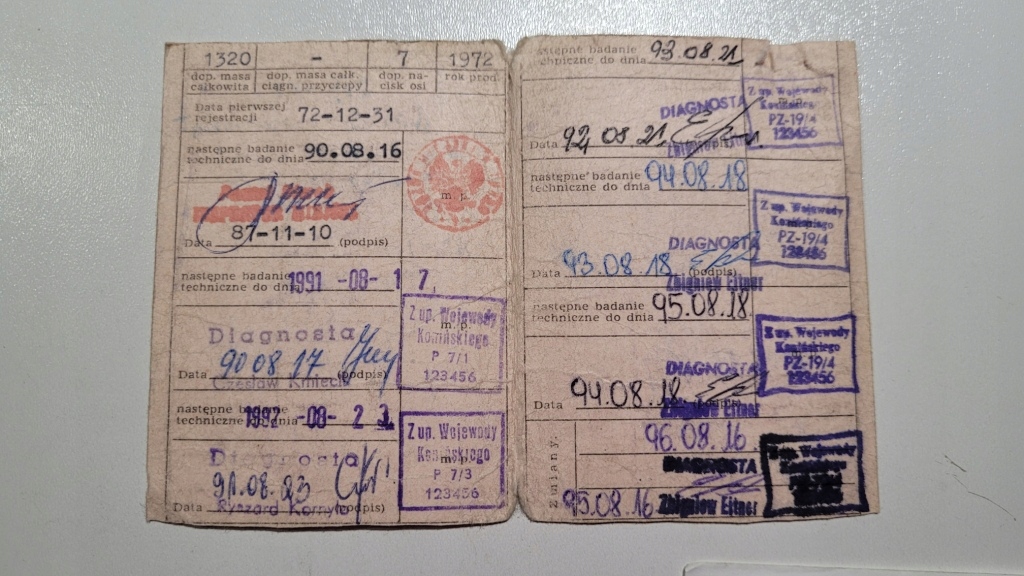 1320 - 7 1972
dop. masa całkowita dop. masa całk. ciągn. przyczepy dop. nacisk osi rok prod.
Data pierwszej rejestracji 72-12-31
następne badanie techniczne do dnia 90.08.16
m. p.
Data 87-11-10 (podpis)
następne badanie techniczne do dnia 1991 -08- 1 7
Diagnosta
Z up. Wojewody
Konińskiego
m. p.
P 7/1
123456
Data 90 08. 17 (podpis)
Czesław Kmiecik
następne badanie techniczne do dnia 1992 -08- 2 3
Diagnosta
Z up. Wojewody
Konińskiego
m. p.
P 7/3
123456
Data 91.08.23 (podpis)
Ryszard
następne badanie techniczne do dnia 93.08.21
DIAGNOSTA
Z up. Wojewody
Konińskiego
PZ-19/4
123456
Data 92.08.21
Zbigniew Ejtner
następne badanie techniczne do dnia 94.08.18
DIAGNOSTA
Z up. Wojewody
Konińskiego
PZ-19/4
123456
Data 93.08.18 (podpis)
Zbigniew Ejtner
następne badanie techniczne do dnia 95.08.18
DIAGNOSTA
Z up. Wojewody
Konińskiego
PZ-19/4
123456
Data 94.08.18 (podpis)
Zbigniew Ejtner
Zmiany.
96.08.16
DIAGNOSTA
Z up. Wojewody
95.08.16 Zbigniew Ejtner